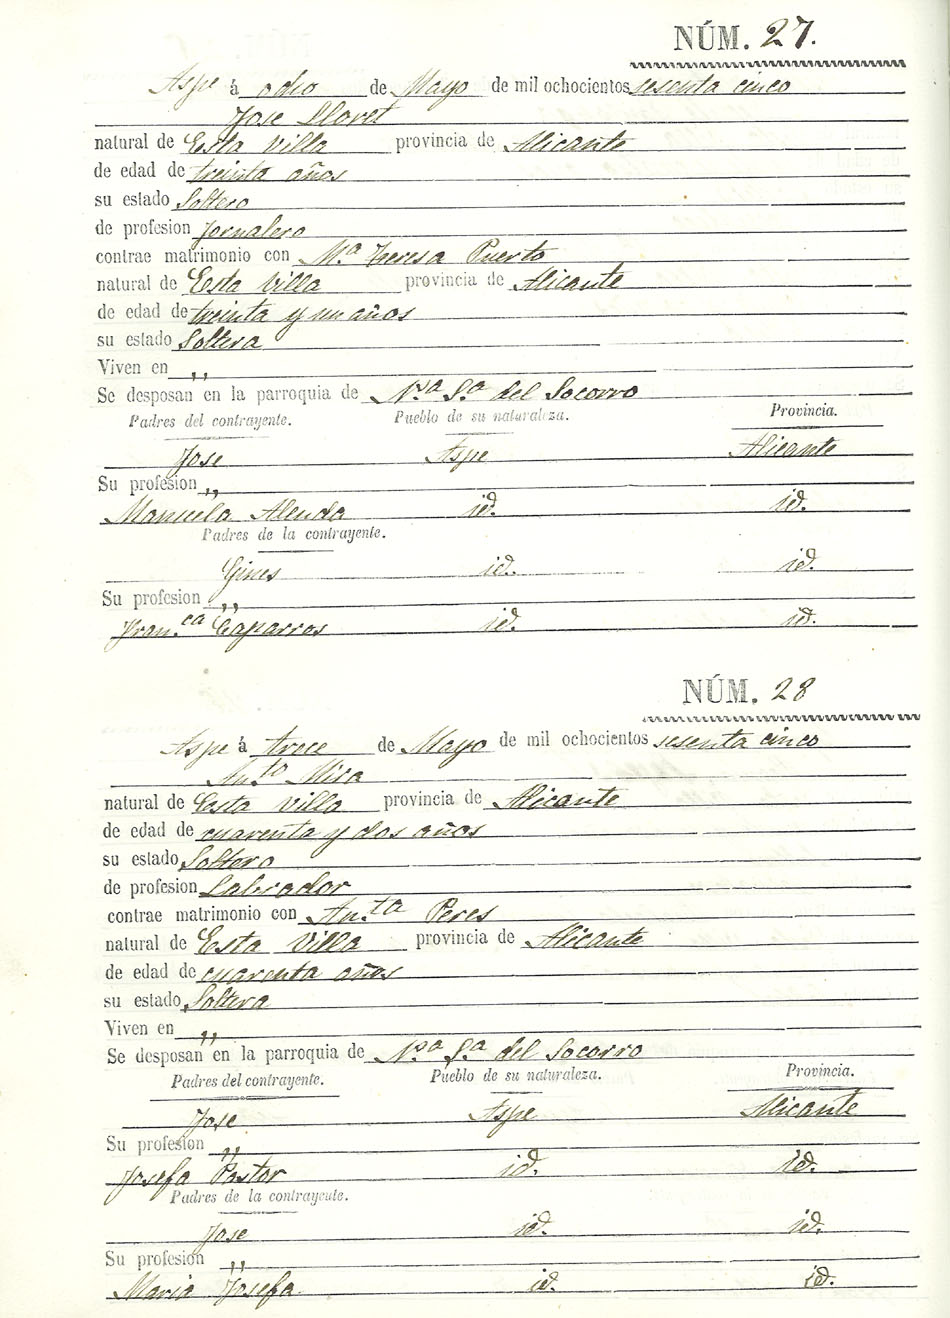 NÚM. 27.
Aspe á ocho de Mayo de mil ochocientos sesenta cinco
Jose Lloret
natural de Esta Villa provincia de Alicante
de edad de treinta años
su estado Soltero
de profesion Jornalero
contrae matrimonio con Mª Teresa Puerto
natural de Esta Villa provincia de Alicante
de edad de treinta y un años
su estado Soltera
Viven en ,,
Se desposan en la parroquia de Nª Sª del Socorro
Padres del contrayente. Pueblo de su naturaleza. Provincia.
Jose Aspe Alicante
Su profesion ,,
Manuela Alenda id. id.
Padres de la contrayente.
Gines id. id.
Su profesion ,,
Fran.ca Caparros id. id.
NÚM. 28
Aspe á trece de Mayo de mil ochocientos sesenta cinco
An.to Mira
natural de Esta Villa provincia de Alicante
de edad de cuarenta y dos años
su estado Soltero
de profesion Labrador
contrae matrimonio con An.ta Peres
natural de Esta Villa provincia de Alicante
de edad de cuarenta años
su estado Soltera
Viven en ,,
Se desposan en la parroquia de Nª Sª del Socorro
Padres del contrayente. Pueblo de su naturaleza. Provincia.
Jose Aspe Alicante
Su profesion ,,
Josefa Pastor id. id.
Padres de la contrayente.
Jose id. id.
Su profesion ,,
Maria Josefa id. id.